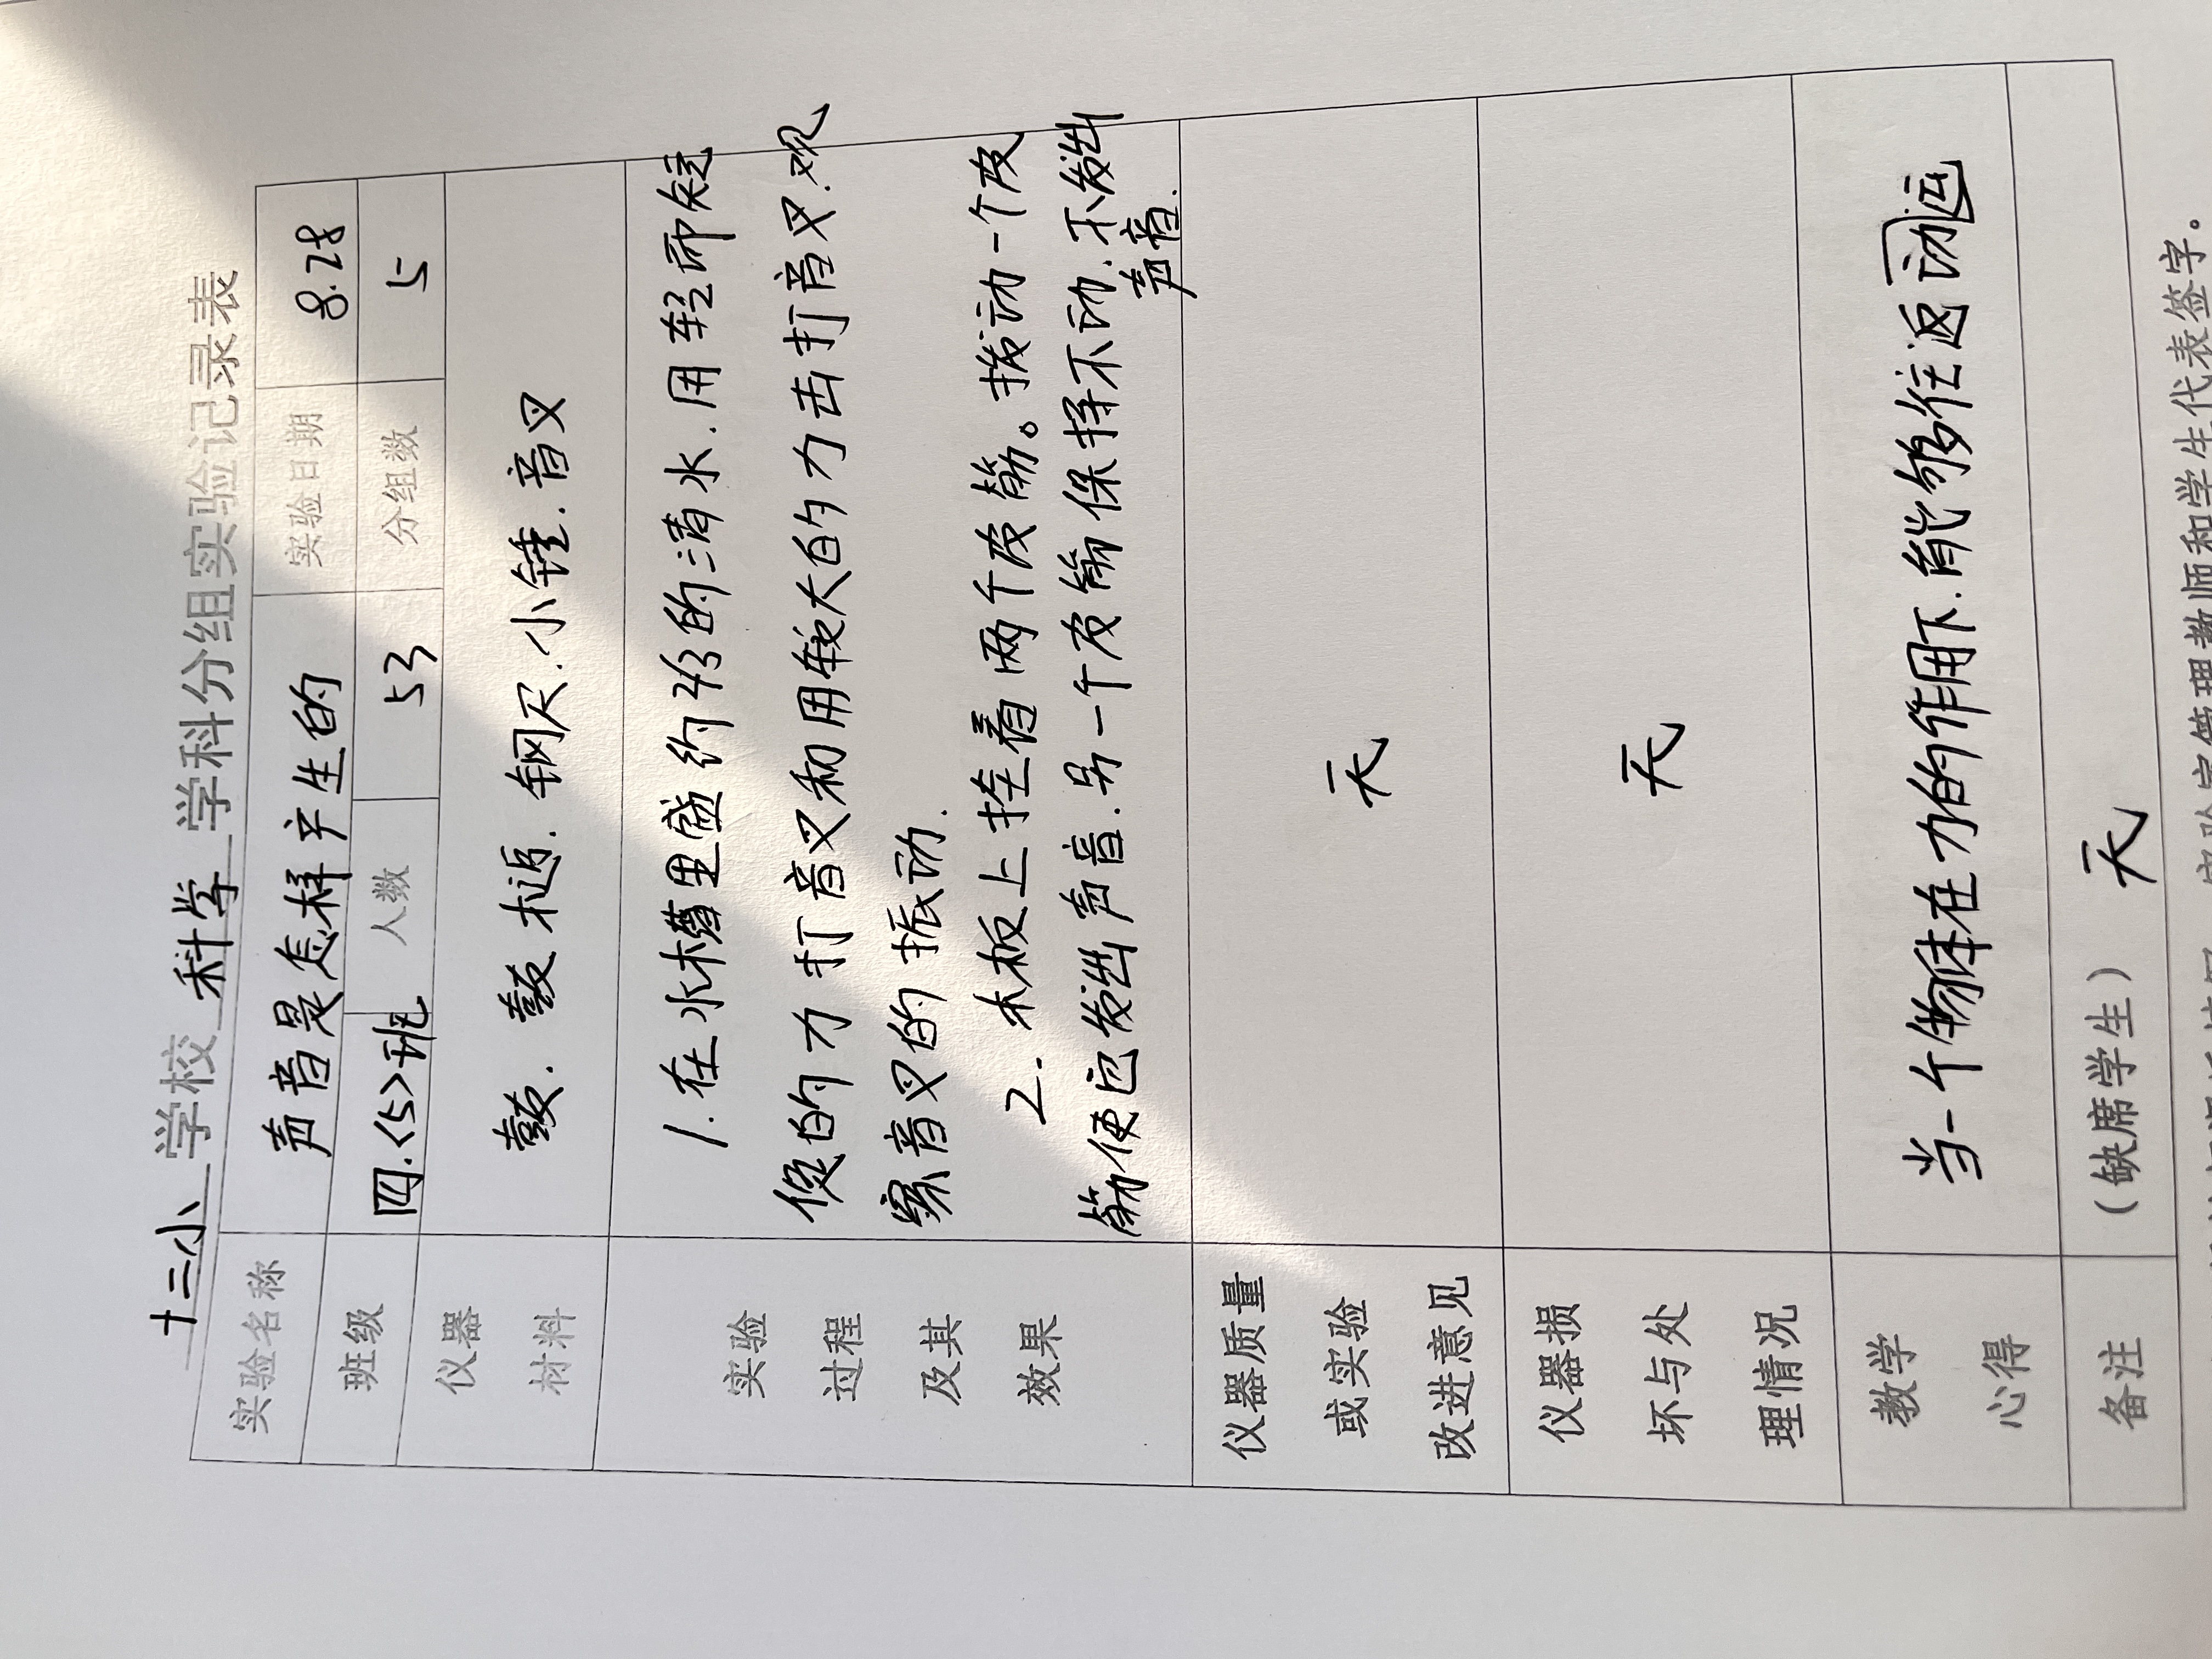 十三小 学校 科学 学科分组实验记录表
实验名称 声音是怎样产生的 实验日期 8.28
班级 四.<5>班 人数 53 分组数 5
仪器 材料 鼓. 鼓槌. 钢尺.小锤.音叉
实验 过程 及其 效果
1.在水槽里盛约2/3的清水.用轻而短
促的力打音叉和用较大的力击打音叉.观
察音叉的振动.
2. 木板上挂着两个皮筋。拨动一个皮
筋使它发出声音.另一个皮筋保持不动.不发出
声音.
仪器质量 或实验 改进意见 无
仪器损 坏与处 理情况 无
教学 心得 当一个物体在力的作用下.能够往返动运
备注 (缺席学生) 无
实验室管理教师和学生代表签字。